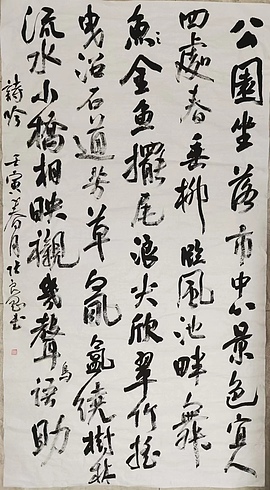 公園坐落市中心景色宜人
四處春垂柳臨風池畔舞
魚金魚擺尾浪尖欣翠竹搖
曳沿石道芳草氤氳繞樹林
流水小橋相映襯幾聲鳥語助
詩吟 壬寅 春月 書